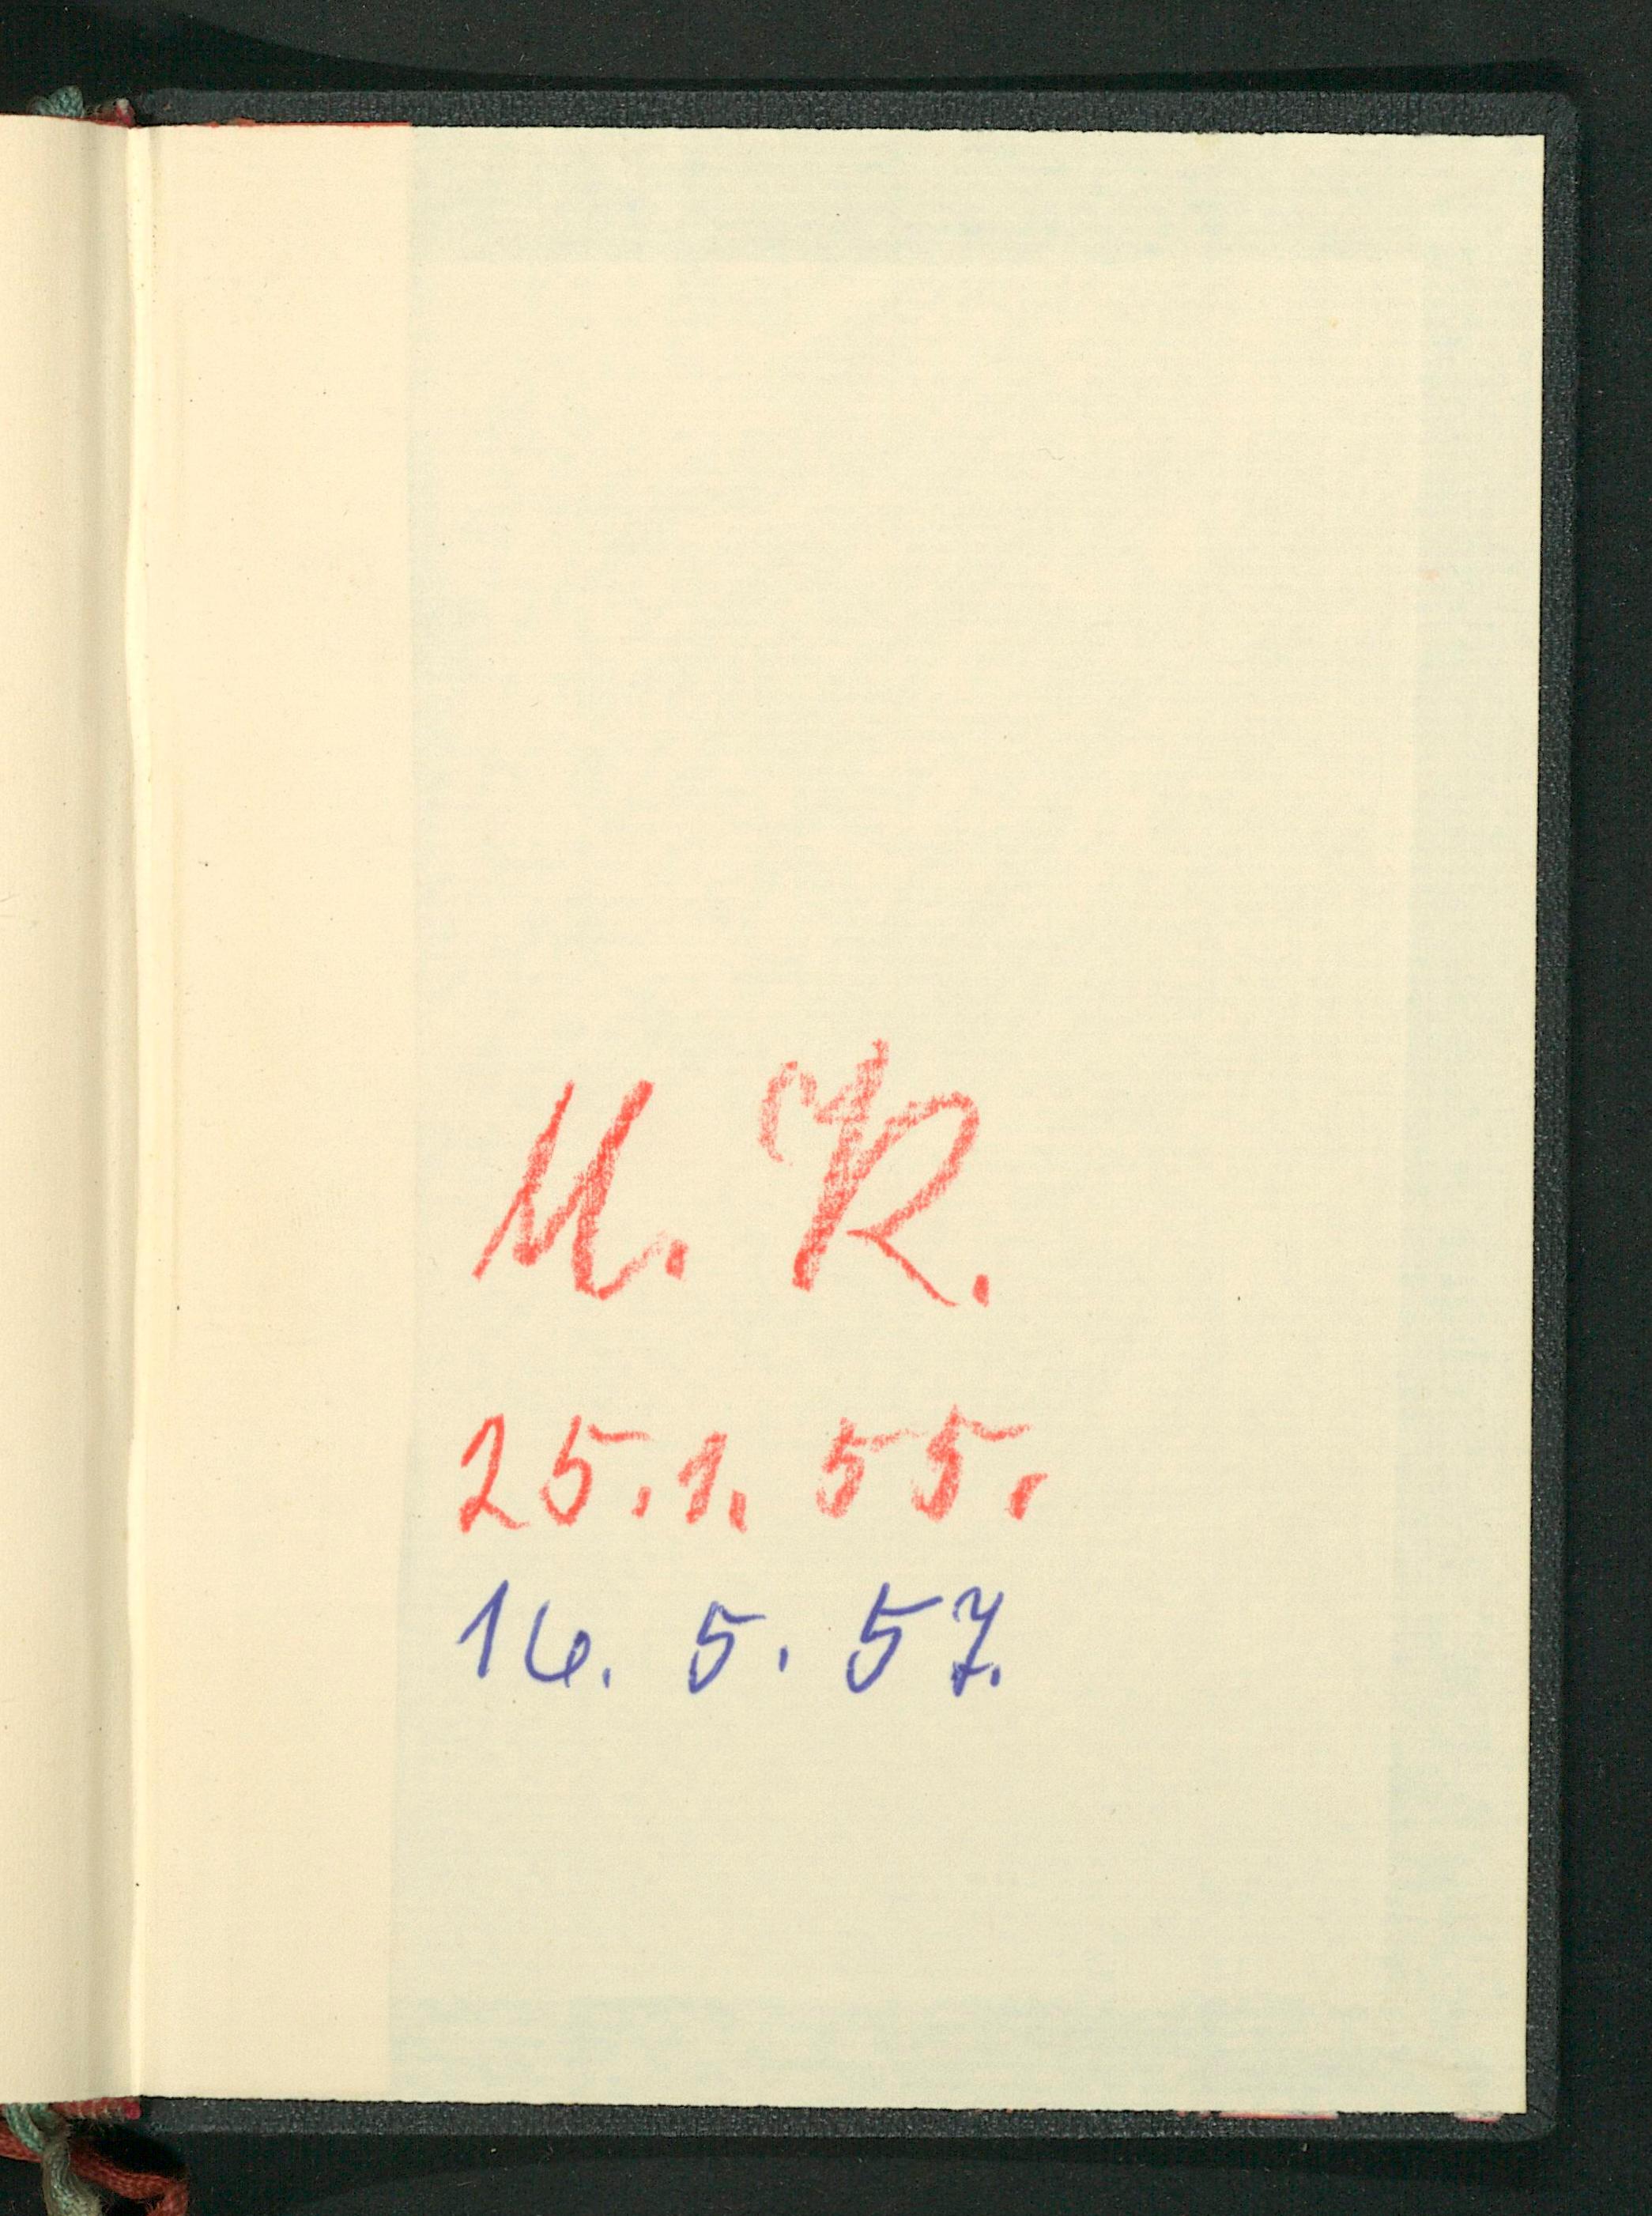 M. R.
25. 1. 55.
16. 5. 57.